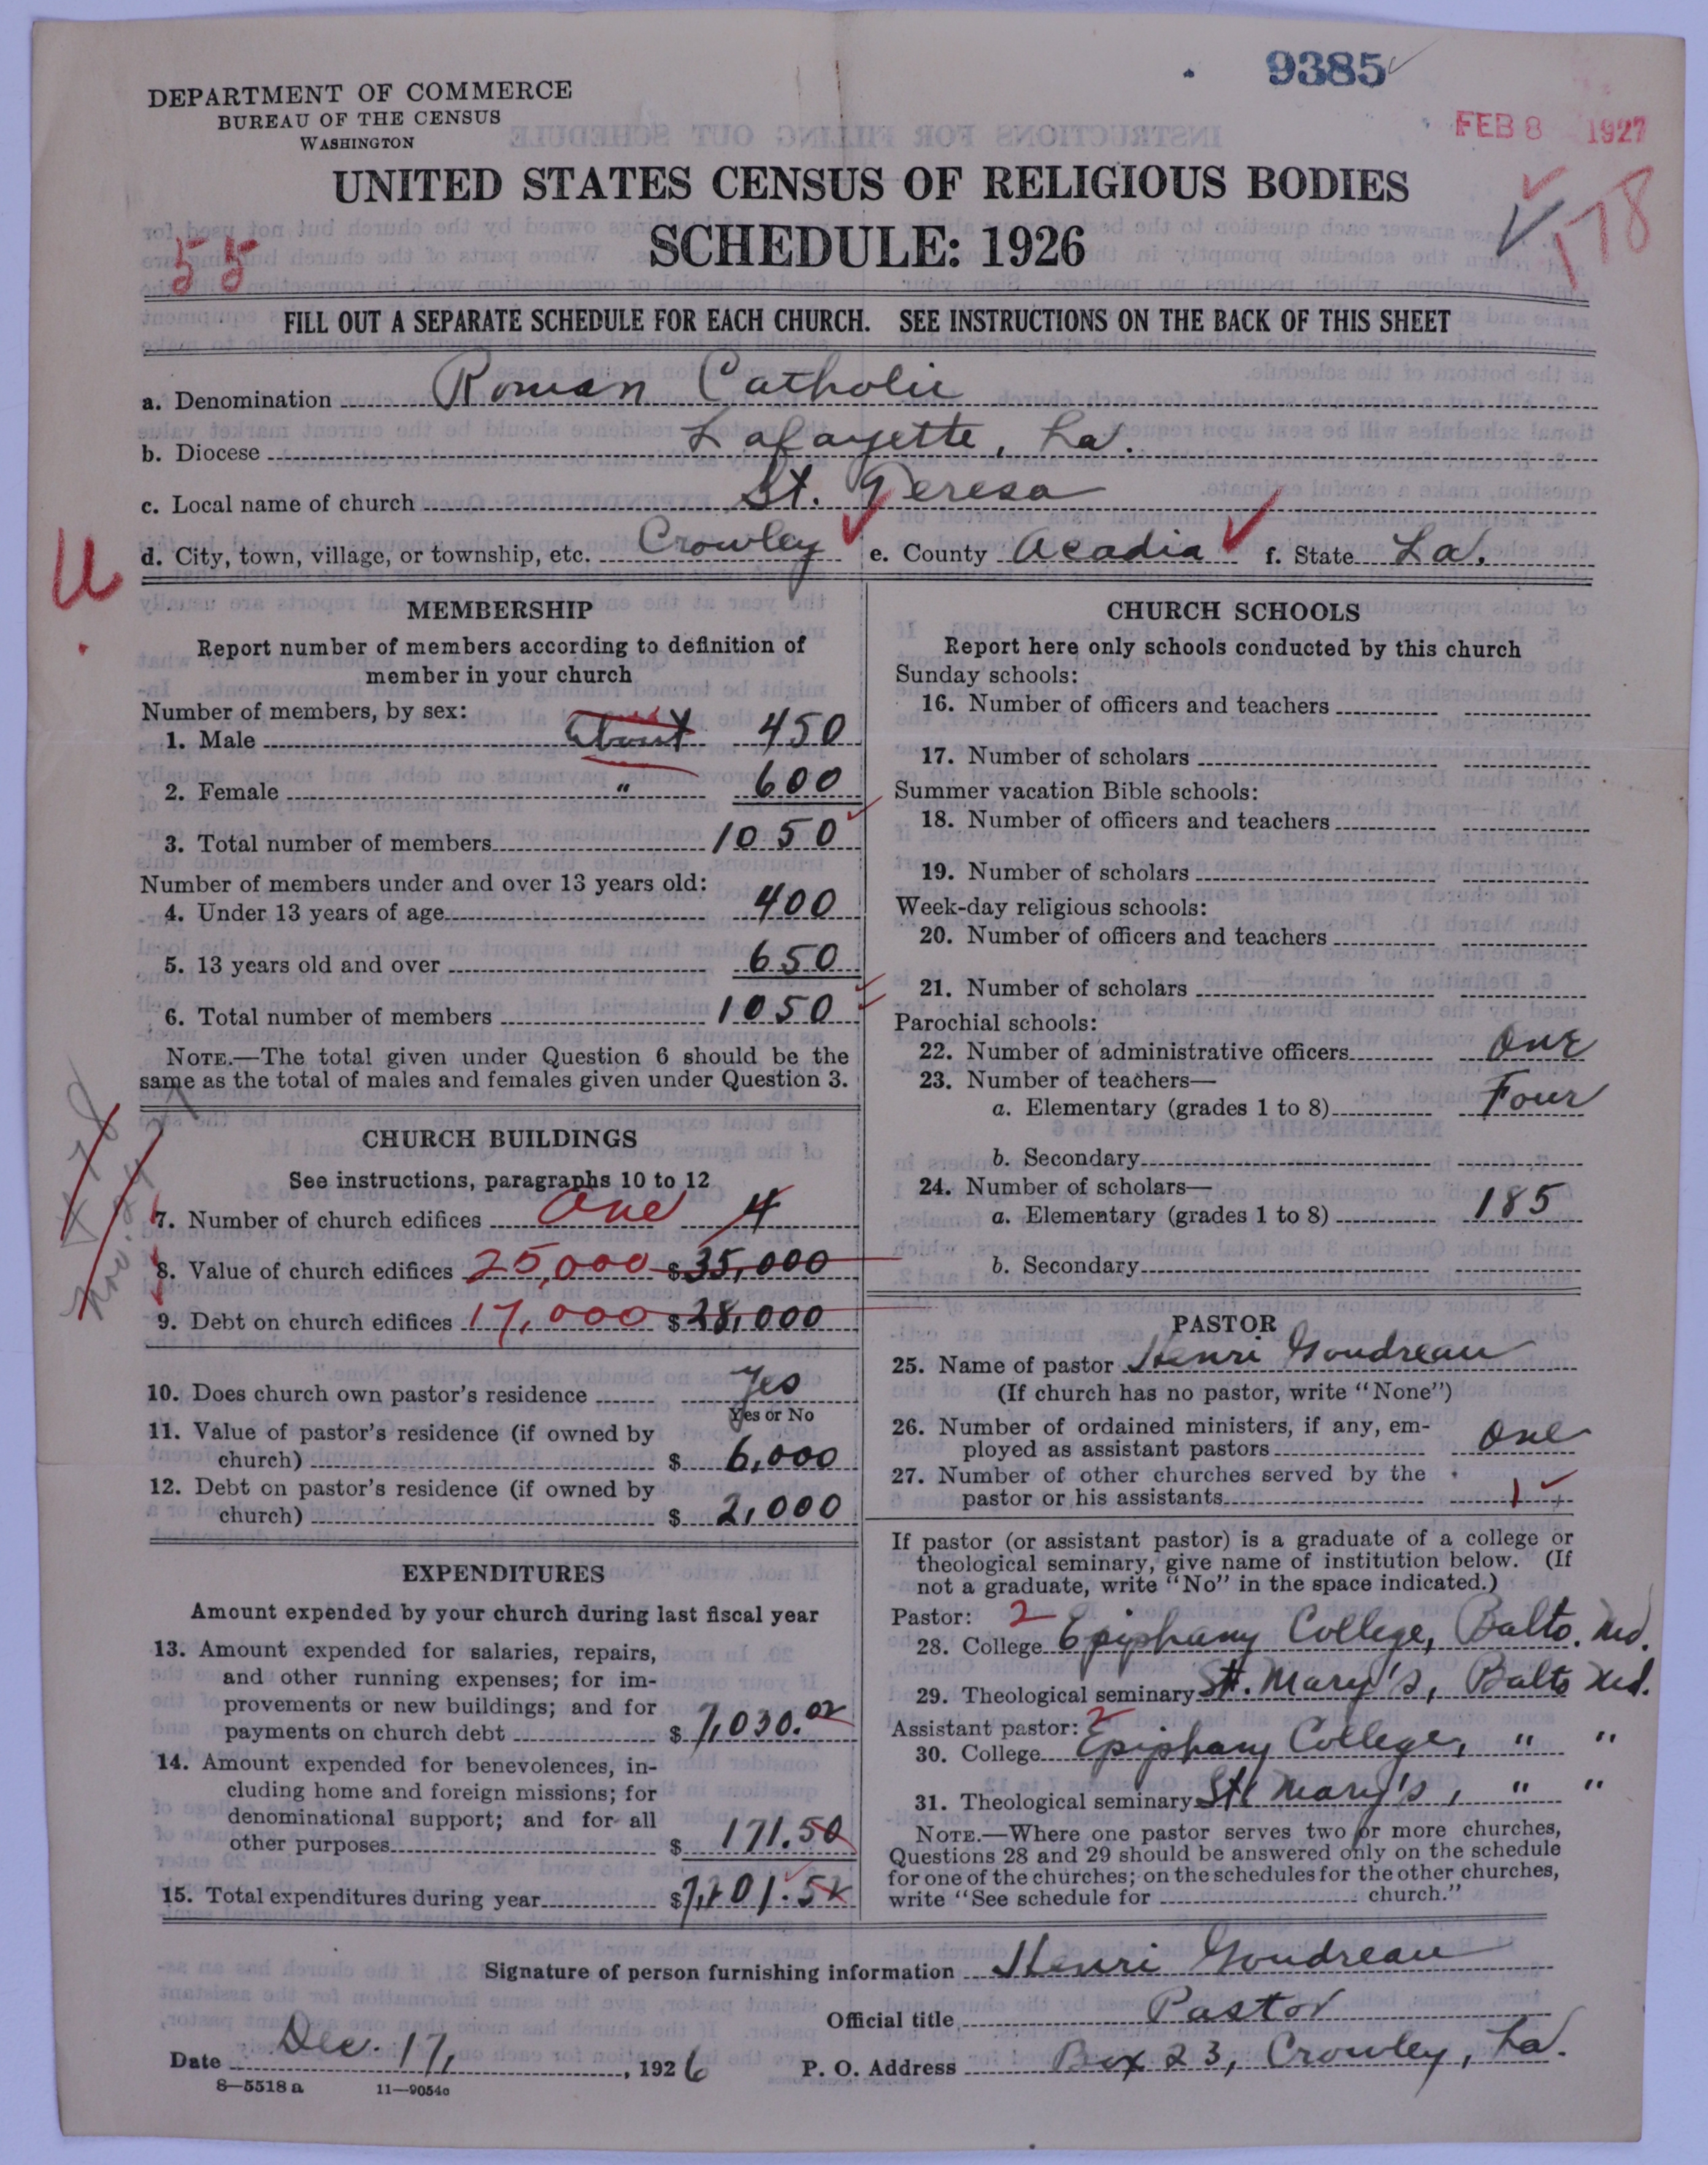 9385
FEB 8 1927
DEPARTMENT OF COMMERCE
BUREAU OF THE CENSUS
WASHINGTON
UNITED STATES CENSUS OF RELIGIOUS BODIES
178
SCHEDULE: 1926
55
FILL OUT A SEPARATE SCHEDULE FOR EACH CHURCH. SEE INSTRUCTIONS ON THE BACK OF THIS SHEET
a. Denomination Roman Catholic
b. Diocese Lafayette, La.
c. Local name of church St. Teresa
d. City, town, village, or township, etc. Crowley e. County Acadia f. State La.
MEMBERSHIP
Report number of members according to definition of
member in your church
Number of members, by sex:
1. Male About 450
2. Female " 600
3. Total number of members 1050
Number of members under and over 13 years old:
4. Under 13 years of age 400
5. 13 years old and over 650
6. Total number of members 1050
NOTE.—The total given under Question 6 should be the
same as the total of males and females given under Question 3.
CHURCH BUILDINGS
See instructions, paragraphs 10 to 12
7. Number of church edifices One 4
8. Value of church edifices 25,000 $35,000
9. Debt on church edifices 17,000 $28,000
10. Does church own pastor's residence Yes
Yes or No
11. Value of pastor's residence (if owned by
church) $ 6,000
12. Debt on pastor's residence (if owned by
church) $ 2,000
EXPENDITURES
Amount expended by your church during last fiscal year
13. Amount expended for salaries, repairs,
and other running expenses; for im-
provements or new buildings; and for
payments on church debt $ 7,030.02
14. Amount expended for benevolences, in-
cluding home and foreign missions; for
denominational support; and for all
other purposes $ 171.50
15. Total expenditures during year $7,201.52
CHURCH SCHOOLS
Report here only schools conducted by this church
Sunday schools:
16. Number of officers and teachers
17. Number of scholars
Summer vacation Bible schools:
18. Number of officers and teachers
19. Number of scholars
Week-day religious schools:
20. Number of officers and teachers
21. Number of scholars
Parochial schools:
22. Number of administrative officers One
23. Number of teachers—
a. Elementary (grades 1 to 8) Four
b. Secondary
24. Number of scholars—
a. Elementary (grades 1 to 8) 185
b. Secondary
PASTOR
25. Name of pastor Henri Goudreau
(If church has no pastor, write "None")
26. Number of ordained ministers, if any, em-
ployed as assistant pastors One
27. Number of other churches served by the
pastor or his assistants 1
If pastor (or assistant pastor) is a graduate of a college or
theological seminary, give name of institution below. (If
not a graduate, write "No" in the space indicated.)
Pastor: 2
28. College Epiphany College, Balto. Md.
29. Theological seminary St. Mary's, Balto Md.
Assistant pastor: 2
30. College Epiphany College, " "
31. Theological seminary St. Mary's, " "
NOTE.—Where one pastor serves two or more churches,
Questions 28 and 29 should be answered only on the schedule
for one of the churches; on the schedules for the other churches,
write "See schedule for church."
Signature of person furnishing information Henri Goudreau
Official title Pastor
Date Dec. 17, 1926 P. O. Address Box 23, Crowley, La.
8—5518 a 11—9054c